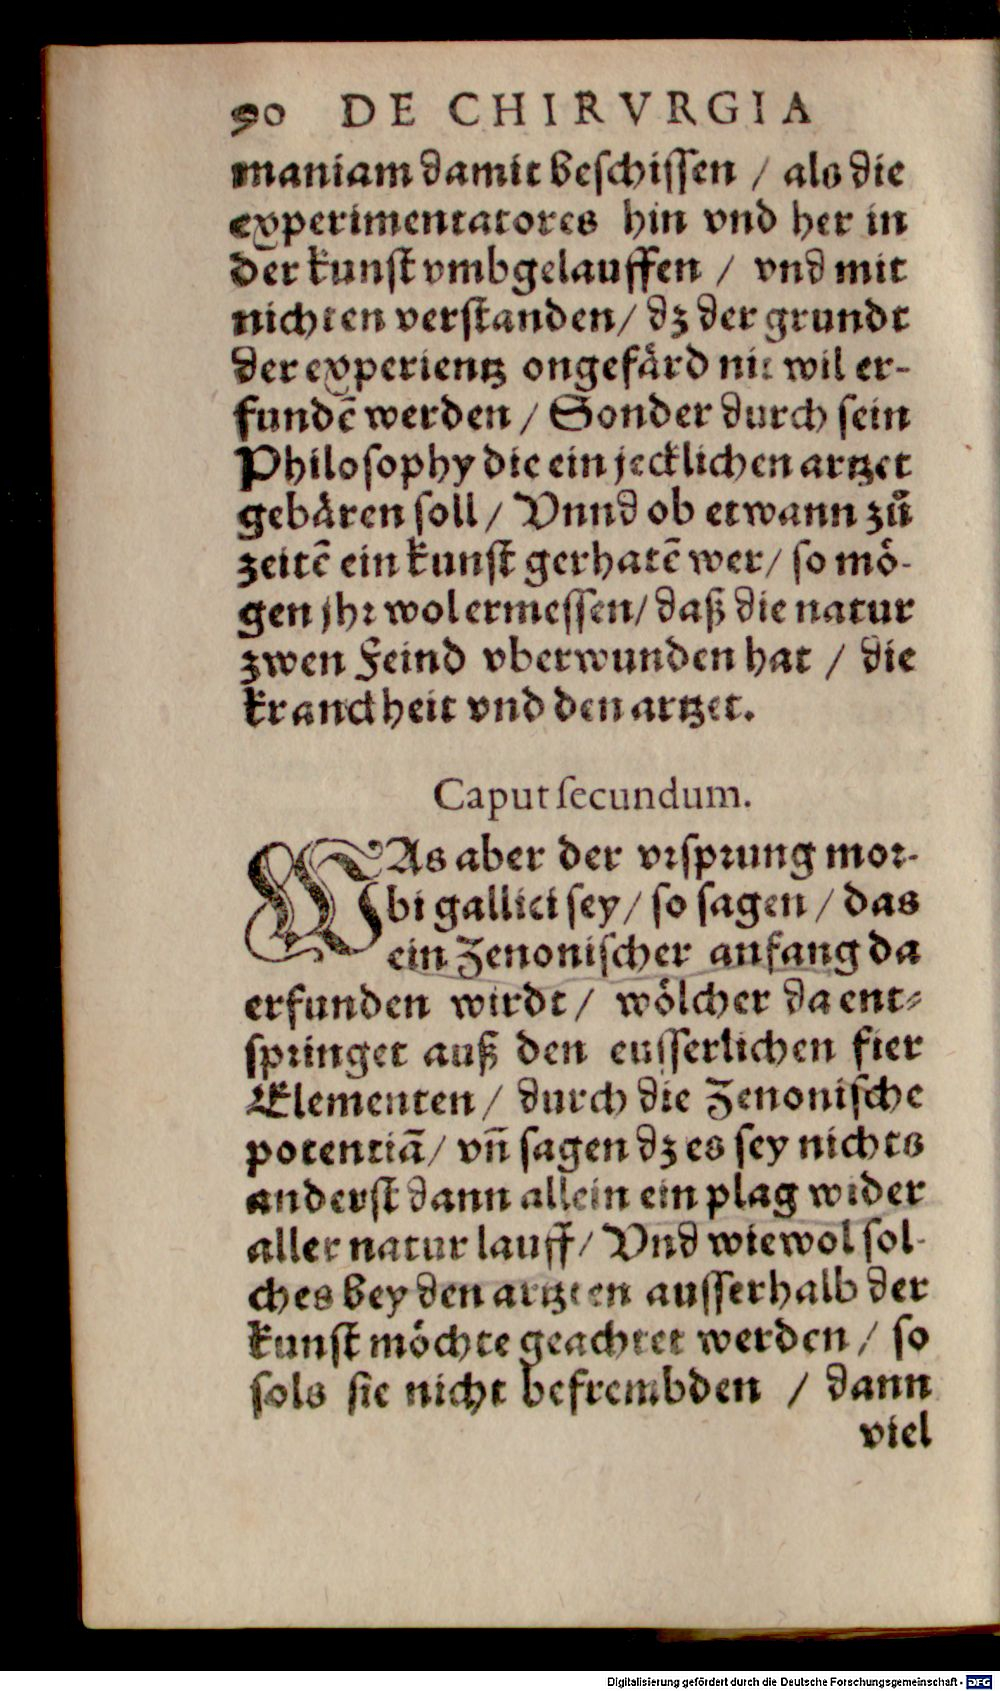 90 DE CHIRVRGIA
maniam damit beschissen / als die
experimentatores hin vnd her in
der kunst vmbgelauffen / vnd mit
nichten verstanden / dz der grundt
der experientz ongefärd nit wil er-
fundē werden / Sonder durch sein
Philosophy die ein jecklichen artzet
gebären soll / Vnnd ob etwann zů
zeitē ein kunst gerhatē wer / so mö-
gen jhr wol ermessen / daß die natur
zwen Feind vberwunden hat / die
kranckheit vnd den artzet.
Caput secundum.
WAs aber der vrsprung mor-
bi gallici sey / so sagen / das
ein Zenonischer anfang da
erfunden wirdt / wölcher da ent-
springet auß den eusserlichen fier
Elementen / durch die Zenonische
potentiā / vñ sagen dz es sey nichts
anderst dann allein ein plag wider
aller natur lauff / Vnd wiewol sol-
ches bey den artzten ausserhalb der
kunst möchte geachtet werden / so
sols sie nicht befrembden / dann
viel
Digitalisierung gefördert durch die Deutsche Forschungsgemeinschaft - DFG